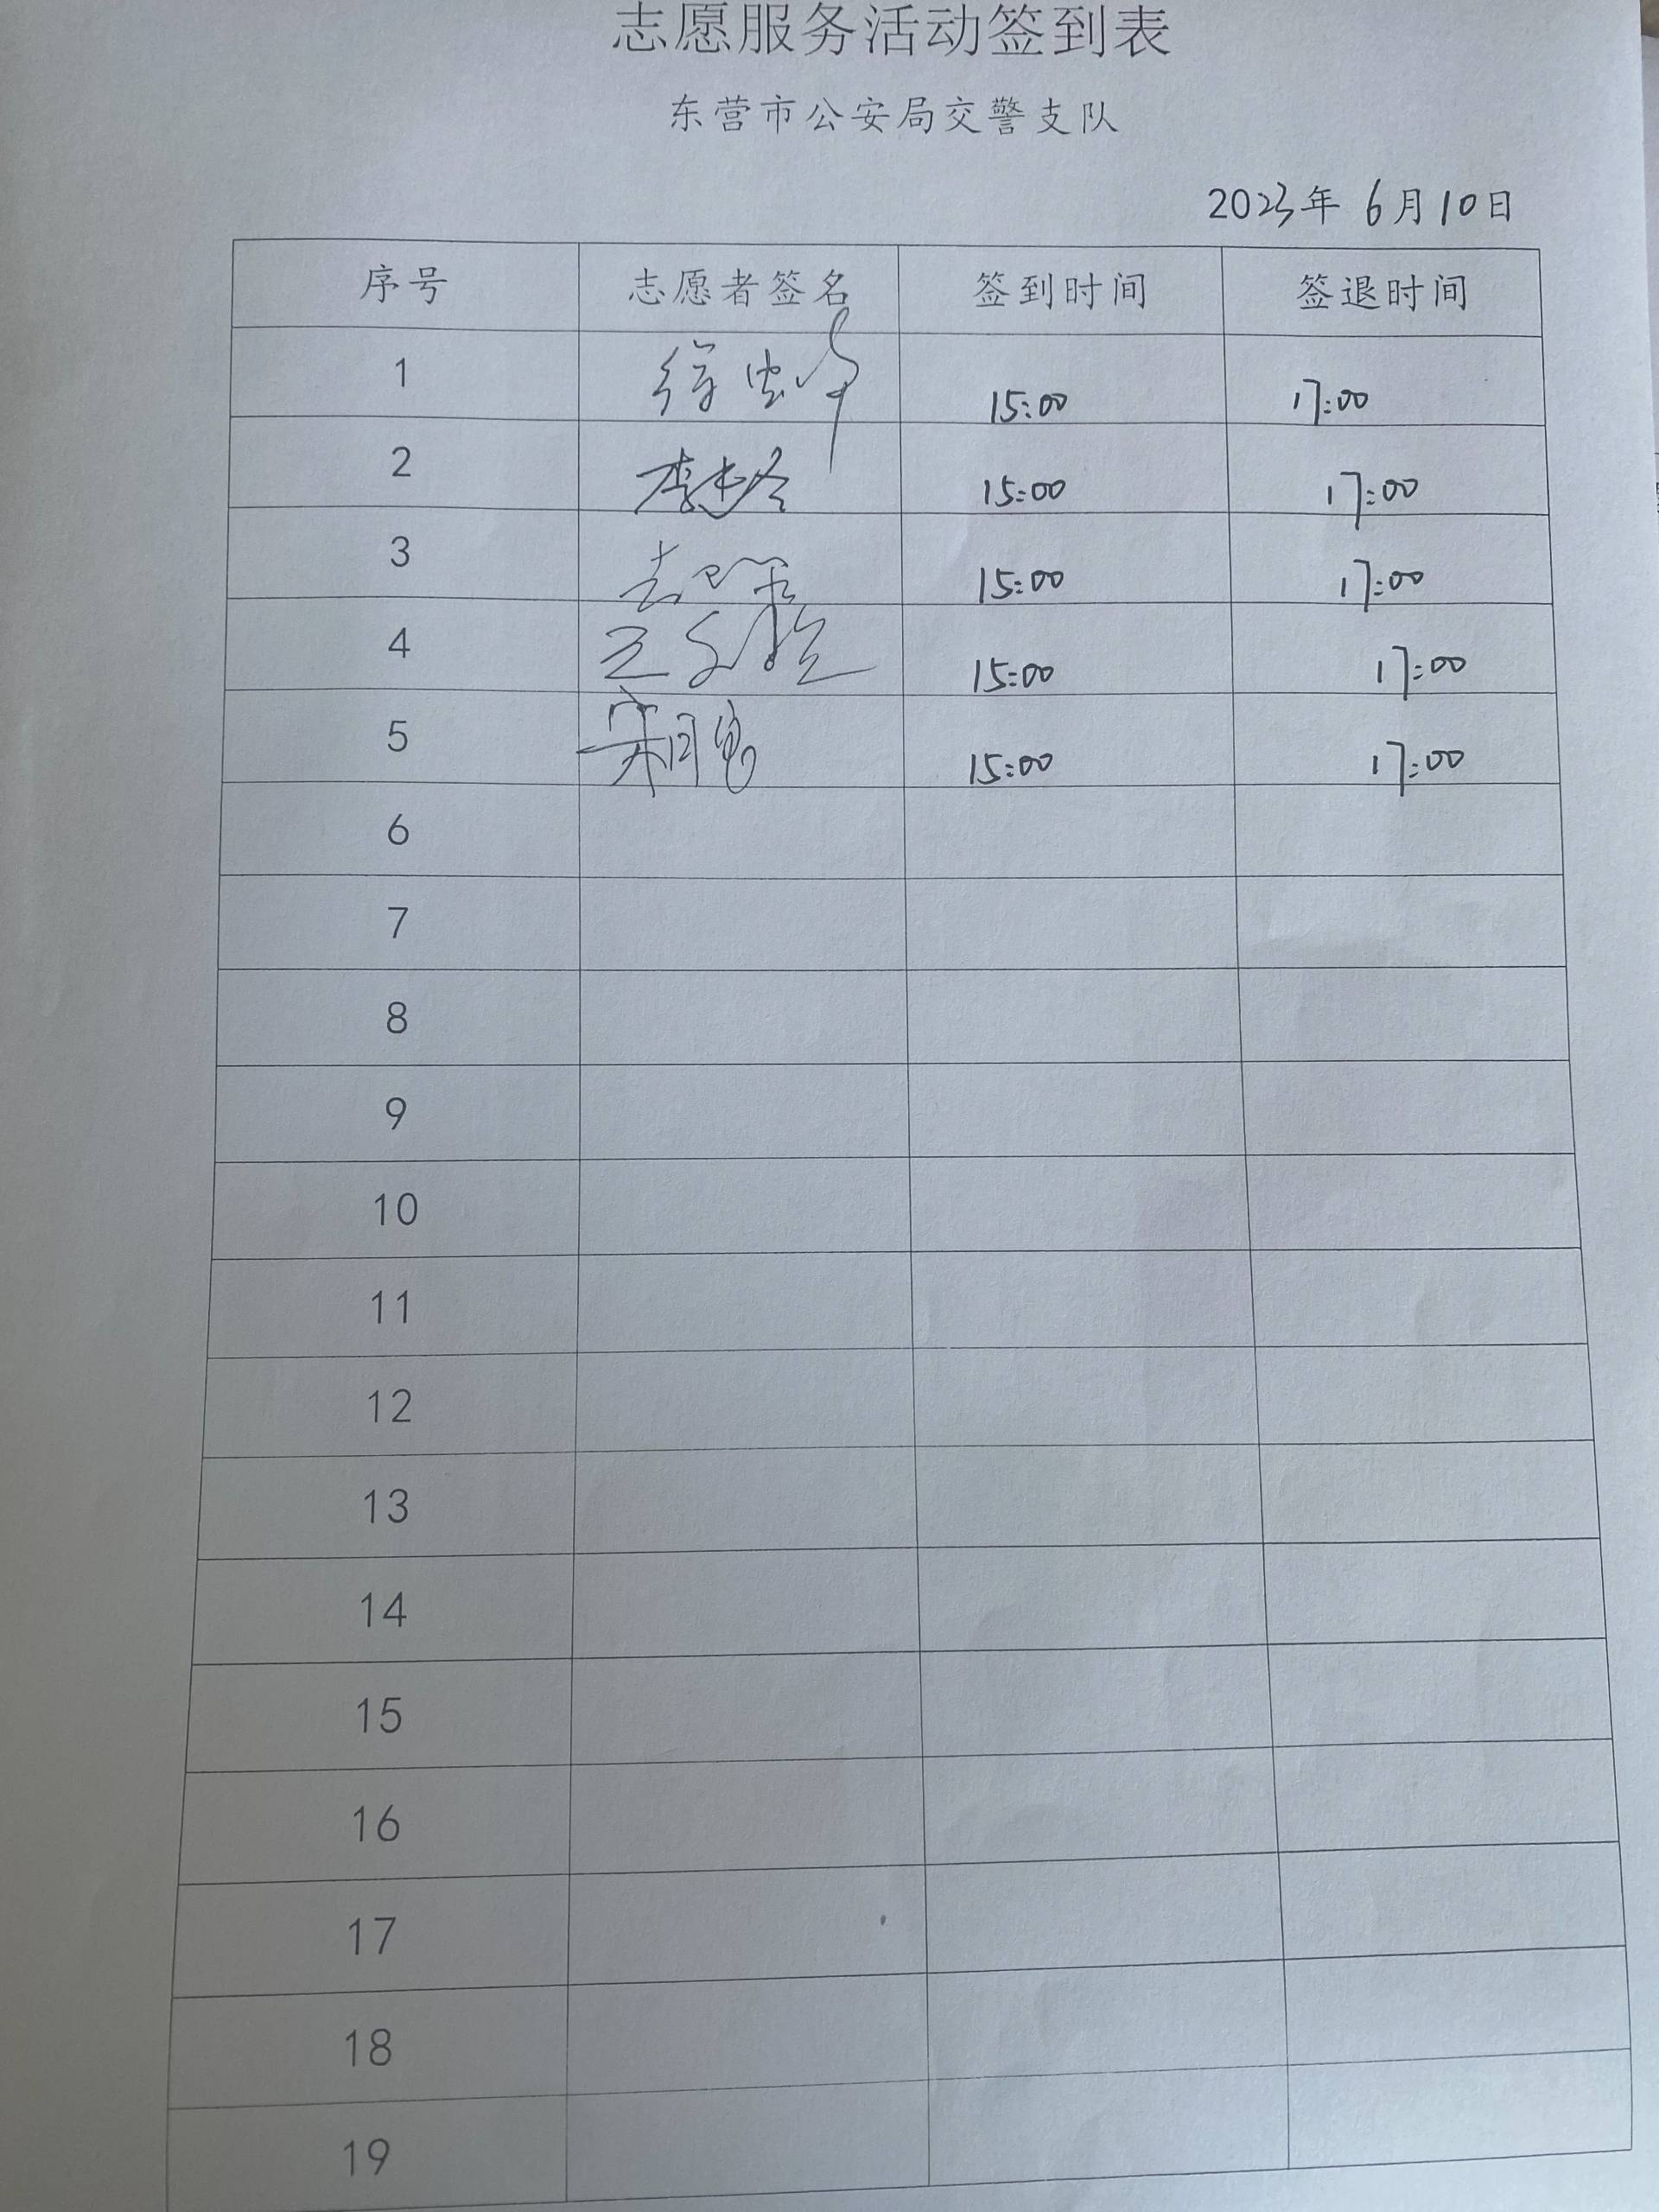 志愿服务活动签到表
东营市公安局交警支队
2023年 6月10日
序号 志愿者签名 签到时间 签退时间
1 15:00 17:00
2 李 15:00 17:00
3 15:00 17:00
4 王 15:00 17:00
5 宋 15:00 17:00
6
7
8
9
10
11
12
13
14
15
16
17
18
19